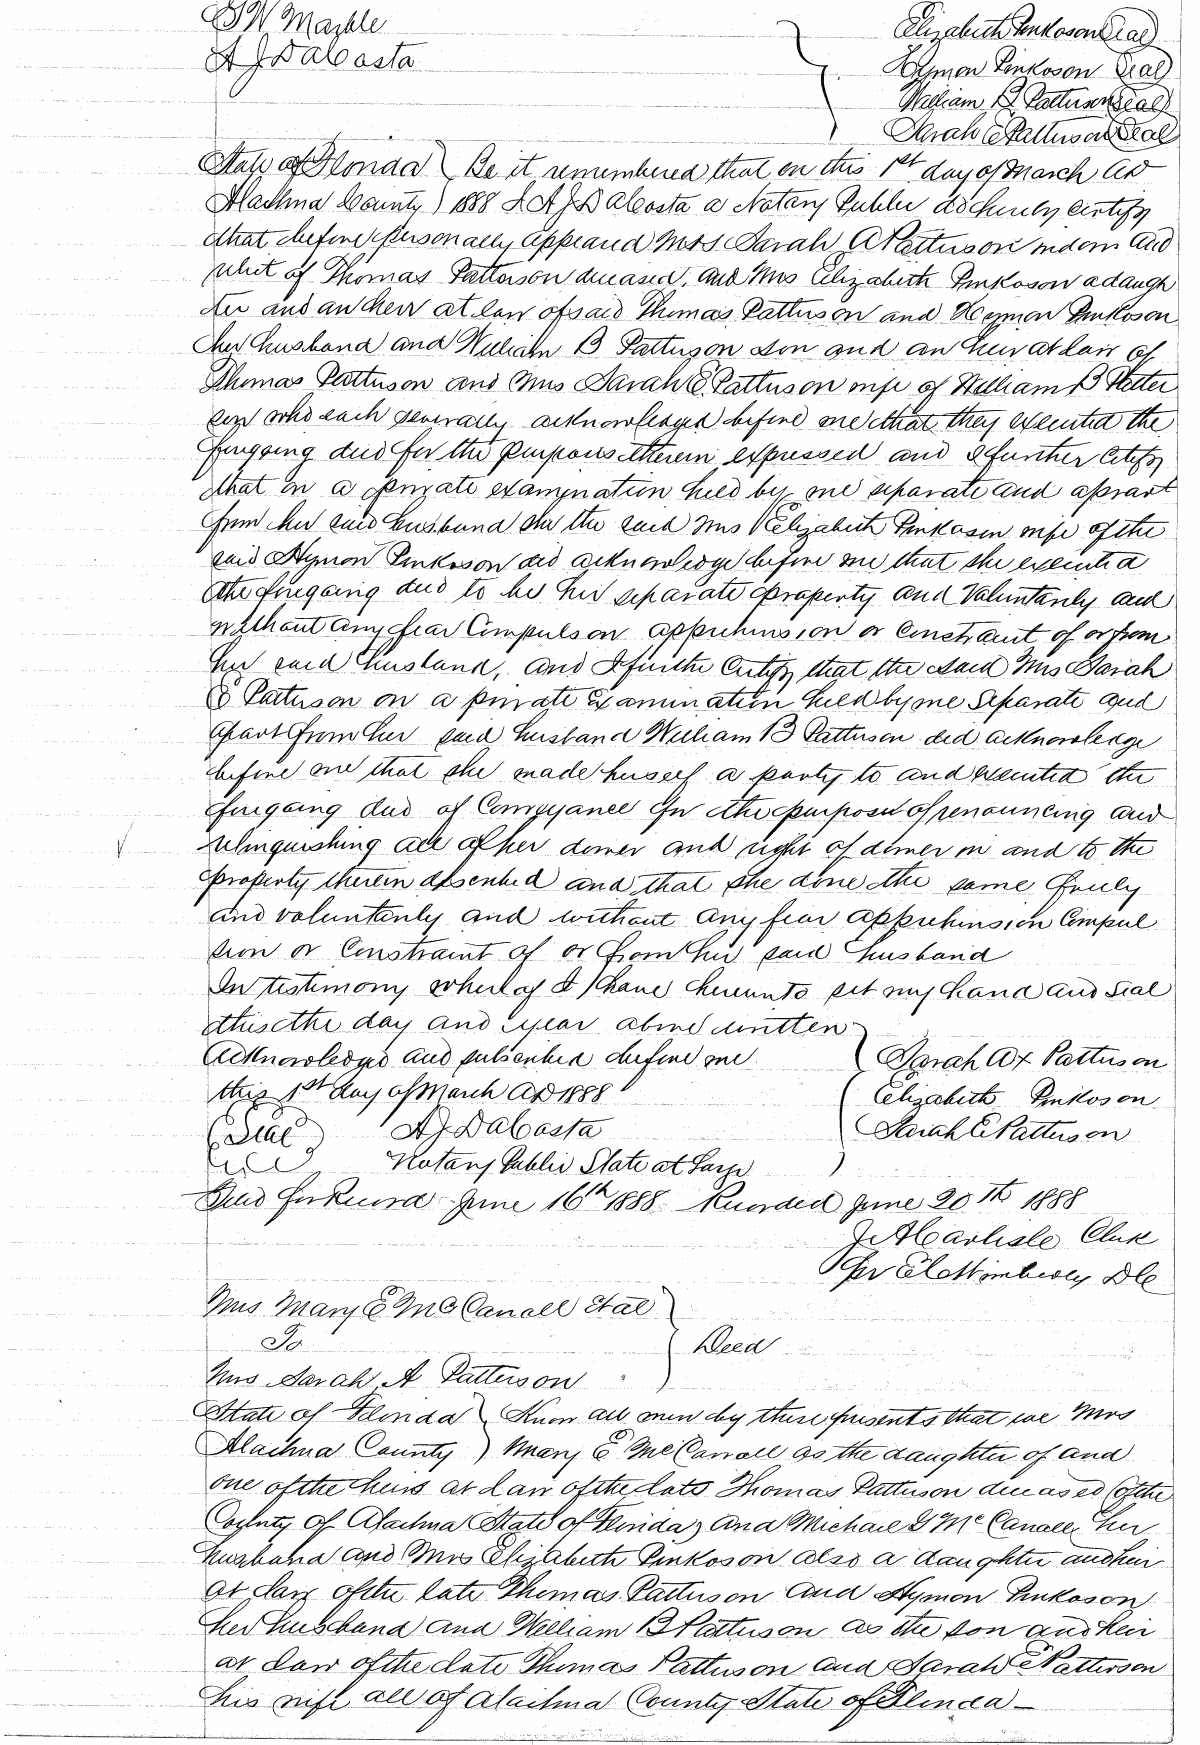 J W Marble Elizabeth Pinkoson Seal
A J DaCosta Hymon Pinkoson Seal
William B Patterson Seal
Sarah E Patterson Seal
State of Florida ) Be it remembered that on this 1st day of March AD
Alachua County ) 1888 I A J DaCosta a Notary Public do hereby certify
that before personally appeared Mrs Sarah A Patterson widow and
relict of Thomas Patterson deceased, and Mrs Elizabeth Pinkoson a daugh
ter and an heir at law of said Thomas Patterson and Hymon Pinkoson
her husband and William B Patterson son and an heir at law of
Thomas Patterson and Mrs Sarah E Patterson wife of William B Patter
son who each severally acknowledged before me that they executed the
foregoing deed for the purposes therein expressed and I further certify
that on a private examination held by me separate and apart
from her said husband she the said Mrs Elizabeth Pinkoson wife of the
said Hymon Pinkoson did acknowledge before me that she executed
the foregoing deed to be her separate property and voluntarily and
without any fear Compulson apprehension or constraint of or from
her said husband, and I further certify that the said Mrs Sarah
E Patterson on a private Examination held by me Separate and
apart from her said husband William B Patterson did acknowledge
before me that she made herself a party to and executed the
foregoing deed of Conveyance for the purpose of renouncing and
relinquishing all of her dower and right of dower in and to the
property therein described and that she done the same freely
and voluntarily and without any fear apprehension Compul
sion or Constraint of or from her said husband
In testimony whereof I have hereunto set my hand and seal
this the day and year above written
Acknowledged and subscribed before me ( Sarah A x Patterson
this 1st day of March AD 1888 ( Elizabeth Pinkoson
(Seal) A J DaCosta ( Sarah E Patterson
Notary Public State at Large )
Filed for Record June 16th 1888 Recorded June 20th 1888
J A Carlisle Clerk
Per DC
Mrs Mary E McCanall Etal )
To ) Deed
Mrs Sarah A Patterson )
State of Florida ) Know all men by these presents that we Mrs
Alachua County ) Mary E McCanall as the daughter of and
one of the heirs at law of the late Thomas Patterson deceased (of the
County of Alachua State of Florida) and Michael McCanall her
husband and Mrs Elizabeth Pinkoson also a daughter and heir
at law of the late Thomas Patterson and Hymon Pinkoson
her husband and William B Patterson as the son and heir
at law of the late Thomas Patterson and Sarah E Patterson
his wife all of Alachua County State of Florida —